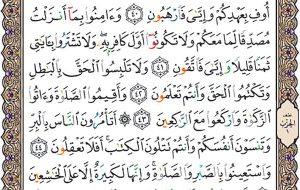 أُوفِ بِعَهْدِكُمْ وَإِيَّٰىَ فَٱرْهَبُونِ ٤٠ وَءَامِنُوا۟ بِمَآ أَنزَلْتُ
مُصَدِّقًا لِّمَا مَعَكُمْ وَلَا تَكُونُوٓا۟ أَوَّلَ كَافِرٍۭ بِهِۦ وَلَا تَشْتَرُوا۟ بِـَٔايَٰتِى
ثَمَنًا قَلِيلًا وَإِيَّٰىَ فَٱتَّقُونِ ٤١ وَلَا تَلْبِسُوا۟ ٱلْحَقَّ بِٱلْبَٰطِلِ
وَتَكْتُمُوا۟ ٱلْحَقَّ وَأَنتُمْ تَعْلَمُونَ ٤٢ وَأَقِيمُوا۟ ٱلصَّلَوٰةَ وَءَاتُوا۟
ٱلزَّكَوٰةَ وَٱرْكَعُوا۟ مَعَ ٱلرَّٰكِعِينَ ٤٣ أَتَأْمُرُونَ ٱلنَّاسَ بِٱلْبِرِّ
وَتَنسَوْنَ أَنفُسَكُمْ وَأَنتُمْ تَتْلُونَ ٱلْكِتَٰبَ أَفَلَا تَعْقِلُونَ ٤٤
وَٱسْتَعِينُوا۟ بِٱلصَّبْرِ وَٱلصَّلَوٰةِ وَإِنَّهَا لَكَبِيرَةٌ إِلَّا عَلَى ٱلْخَٰشِعِينَ